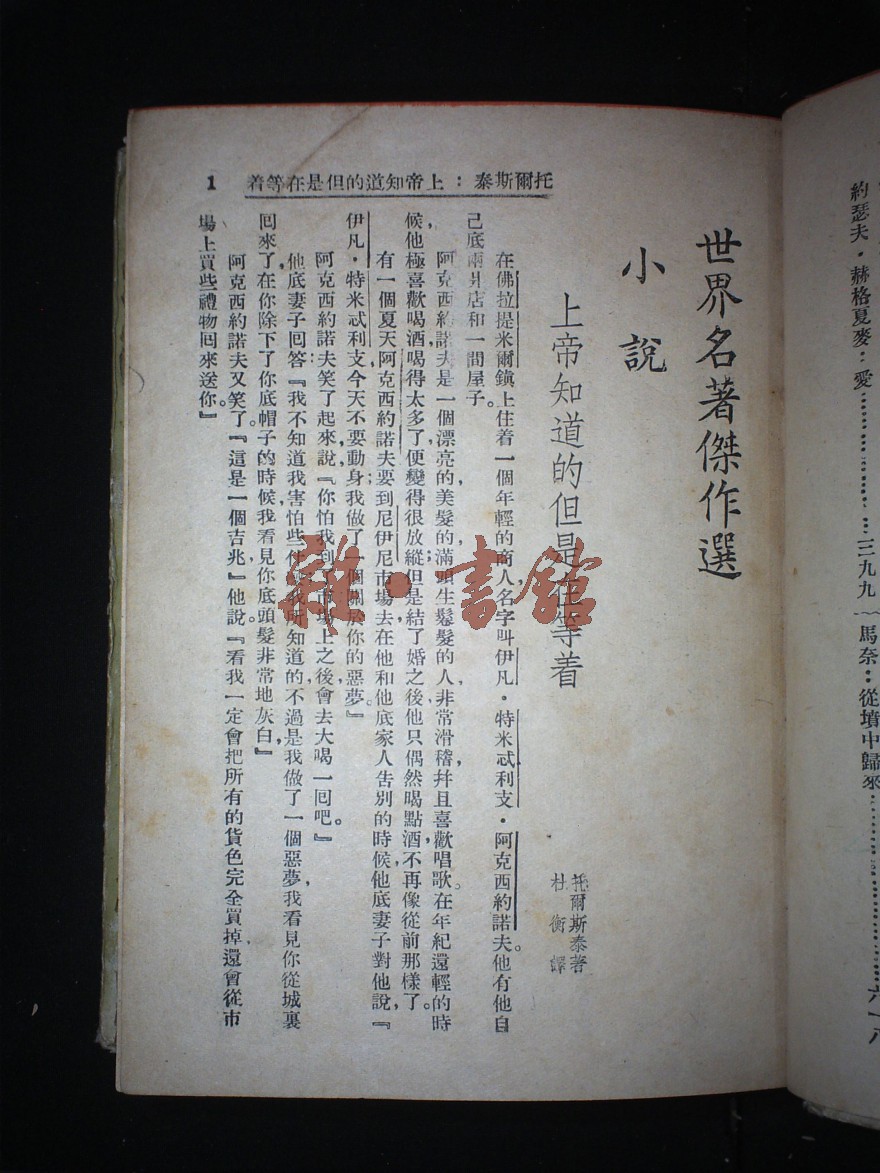 約瑟夫·赫格夏麥：愛………………三九九
馬奈：從墳中歸來………………六一八
托爾斯泰：上帝知道的但是在等着
1
世界名著傑作選
小說
上帝知道的但是在等着
托爾斯泰著
杜衡譯
在佛拉提米爾鎮上住着一個年輕的商人，名字叫伊凡·特米忒利支·阿克西約諾夫。他有他自
己底兩爿店和一間屋子。
阿克西約諾夫是一個漂亮的，美髮的，滿頭生鬈髮的人，非常滑稽，并且喜歡唱歌。在年紀還輕的時
候，他極喜歡喝酒，喝得太多了，便變得很放縱；但是結了婚之後，他只偶然喝點酒，不再像從前那樣了。
有一個夏天，阿克西約諾夫要到尼伊尼市場去，在他和他底家人告別的時候，他底妻子對他說，『
伊凡·特米忒利支，今天不要動身；我做了一個關於你的惡夢。』
阿克西約諾夫笑了起來，說，『你怕我到了市場上之後會去大喝一回吧。』
他底妻子回答：『我不知道我害怕些什麼；我所知道的不過是我做了一個惡夢。我看見你從城裏
回來了，在你除下了你底帽子的時候，我看見你底頭髮非常地灰白。』
阿克西約諾夫又笑了。『這是一個吉兆，』他說。『看我一定會把所有的貨色完全買掉，還會從市
場上買些禮物回來送你。』
雜·書館